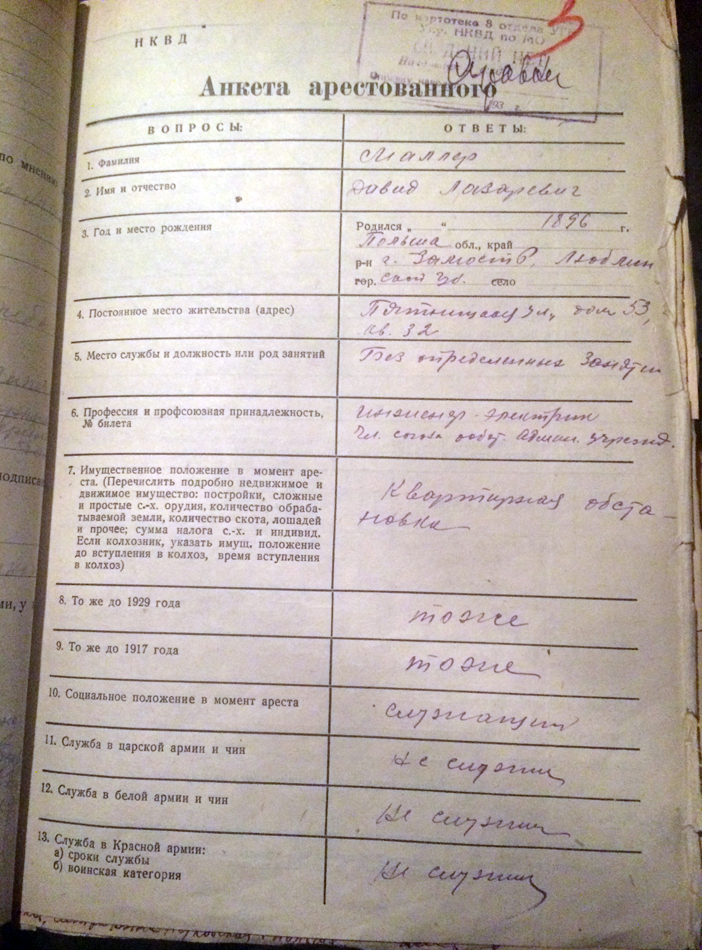 НКВД
По картотеке 8 отдела УГБ
Упр. НКВД по МО
СВЕДЕНИЙ НЕТ
193 г.
Анкета арестованного
ВОПРОСЫ:
ОТВЕТЫ:
1. Фамилия
2. Имя и отчество
Давид Лазаревич
3. Год и место рождения
Родился „ “ 1896 г.
Польша обл., край
р-н г. Замостье, Люблин
гор. ской губ. село
4. Постоянное место жительства (адрес)
Пятницкая ул., дом 53,
кв. 32
5. Место службы и должность или род занятий
Без определенных занятий
6. Профессия и профсоюзная принадлежность,
№ билета
инженер-электрик
Чл. союза работ. админ. учрежд.
7. Имущественное положение в момент аре-
ста. (Перечислить подробно недвижимое и
движимое имущество: постройки, сложные
и простые с.-х. орудия, количество обраба-
тываемой земли, количество скота, лошадей
и прочее; сумма налога с.-х. и индивид.
Если колхозник, указать имущ. положение
до вступления в колхоз, время вступления
в колхоз)
Квартирная обста-
новка
8. То же до 1929 года
тоже
9. То же до 1917 года
тоже
10. Социальное положение в момент ареста
служащий
11. Служба в царской армии и чин
Не служил
12. Служба в белой армии и чин
Не служил
13. Служба в Красной армии:
а) сроки службы
б) воинская категория
Не служил